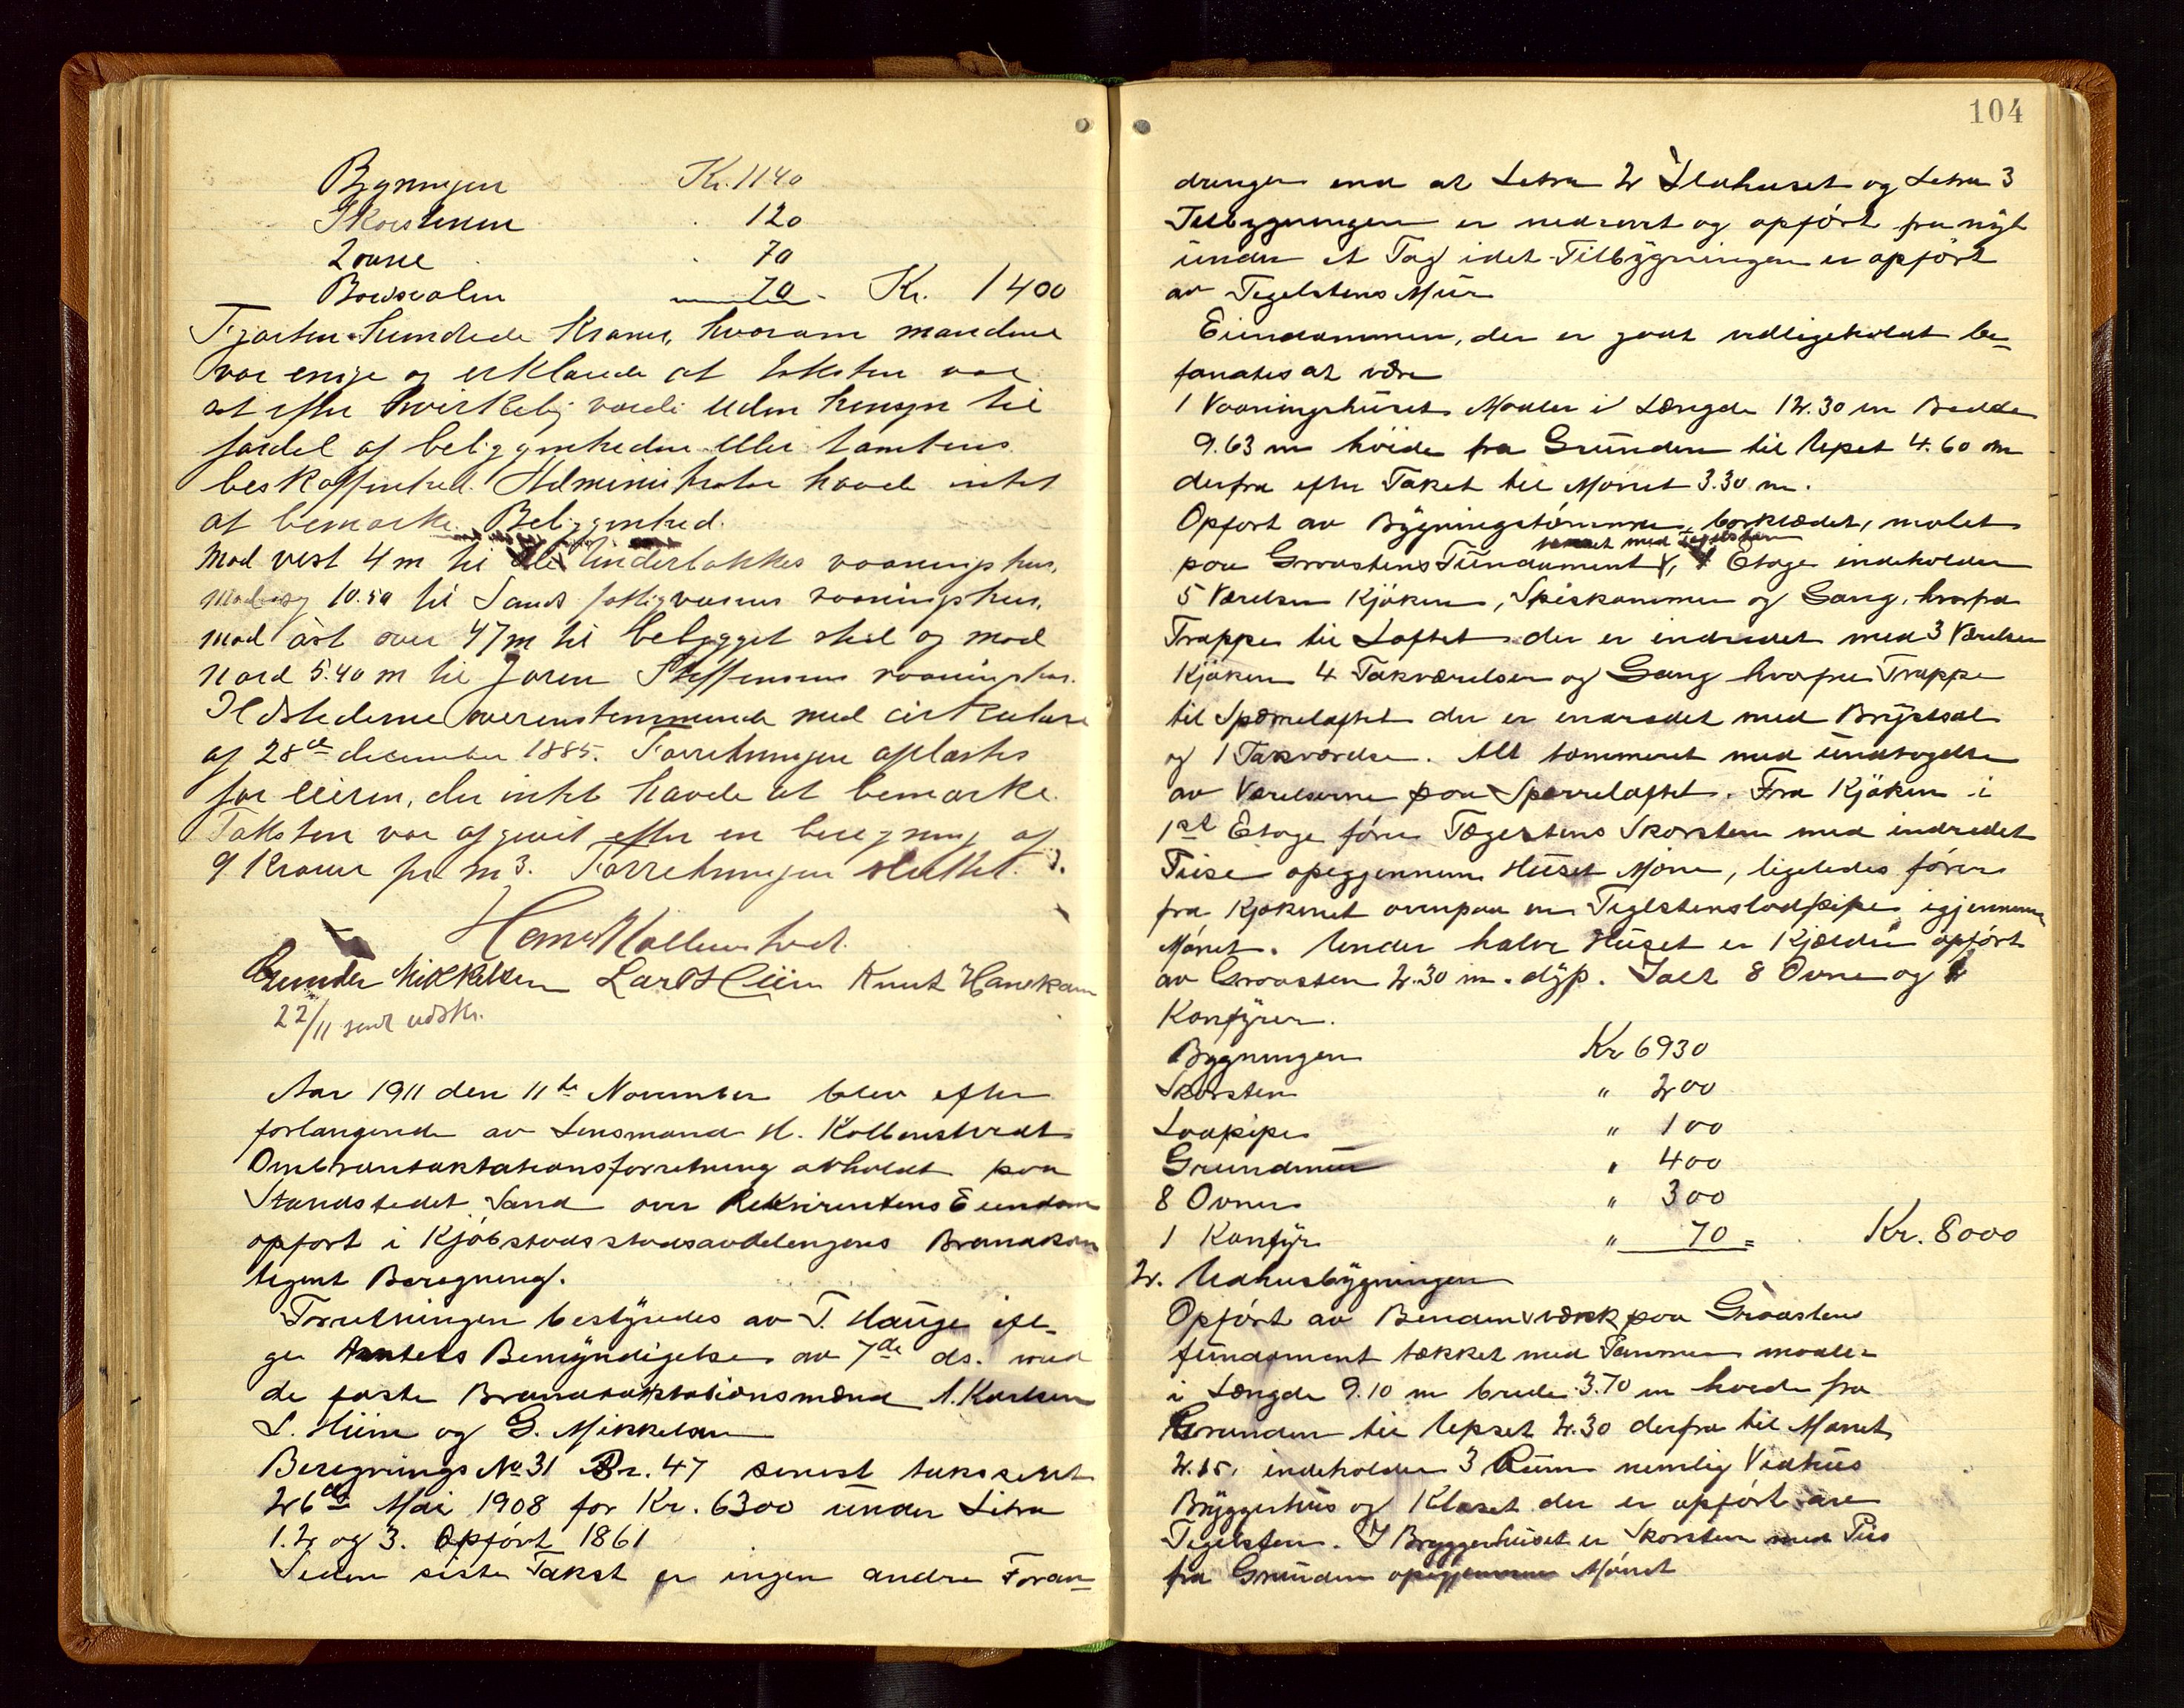 Bygningen Kr. 1140
Skorstenen . 120
2 ovne . 70
Bordsalen 70 Kr. 1400
Fjorten hundrede kroner, hvorom mændene
var enige og erklærede at taksten var
sat efter virkelig værdi uden hensyn til
fordel af beliggenheden eller tomtens
beskaffenhed. Administrator havde intet
at bemærke. Beliggenhed.
Mod vest 4 m til Underbakkes vaaningshus,
mod syd 10.50 til Sands fattigvæsens vaaningshus,
mod øst over 47 m til bebygget sted og mod
nord 5.40 m til Joren Steffensens vaaningshus.
Ildstederne overensstemmende med cirkulære
af 28de december 1885. Forretningen oplæstes
for eieren, der intet havde at bemærke.
Taksten var afgivit efter en beregning af
9 kroner pr m3. Forretningen sluttet.
Hans Kollenstvedt
Gunder Mikkelsen Lars Hiim Knut
22/11 sendt udskr.
Aar 1911 den 11te November blev efter
forlangende av Lensmand H. Kollenstvedt
Ombrantakstationsforretning avholdt paa
Strandstedet Sand over Rekvirentens Eiendom
opført i Kjöbstadsstadsavdelingens Brandkon
tigent Beregning.
Forretningen bestyredes av T. Hauge iføl-
ge Amtets Bemyndigelse av 7de ds. med
de faste Brandtakstationsmænd A. Karlsen
L. Hiim og G. Mikkelsen
Beregnings No 31 Br. 47 senest taksert
26de Mai 1908 for Kr. 6300 under Litra
1. 2 og 3. Opført 1861
Siden siste Takst er ingen andre Foran-
104
dringer end at Letra 2 Ildhuset og Letra 3
Tilbygningen er nedrevet og opført fra nyt
under et Tag idet Tilbygningen er opført
av Tegelstens Mur
Eiendommen, der er godt vedligeholdt be-
fandtes at være
1 Vaaningshuset Maaler i Længde 12.30 m Bredde
9.63 m höide fra Grunden til Upset 4.60 m
derfra efter Taket til Mønet 3.30 m.
Opført av Bygningstömmer, bordklædet, malet
tækket med Tegelsten
paa Graastens Fundament, 1 Etage indeholder
5 Værelser Kjöken, Spiskammer og Gang, hvorfra
Trappe til Loftet der er indredet med 3 Værelser
Kjöken 4 Takværelser og Gang hvorfra Trappe
til Spærreloftet der er indredet med Brystsal
og 1 Takværelse. Alt tømmeret med undtagelse
av Værelserne paa Sperreloftet. Fra Kjöken i
1st Etage fører Tægelstens Skorsten med indredet
Peise opigjennem Huset Møne, ligeledes förer
fra Kjøkenet ovenpaa en Teglstenslodpipe igjennem
Mønet. Under halve Huset er Kjælder opført
av Graasten 2.30 m. dyp. Ialt 8 Ovne og
Komfyrer.
Bygningen Kr 6930
Skorsten " 200
Lodpipe " 100
Grundmur " 400
8 Ovner " 300
1 Komfyr " 70 = Kr. 8000
2. Udhusbygningen
Opført av Bendingsværk paa Graastens
fundament tækket med Panner maaler
i Længde 9.10 m brede 3.70 m høide fra
Grunden til Upset 2.30 derfra til Mønet
2.15, indeholder 3 Rum nemlig Vedhus
Bryggerhus og Kloset der er opført av
Tegelsten. I Bryggerhuset er Skorsten med Peis
fra Grunden opigjennem Mønet